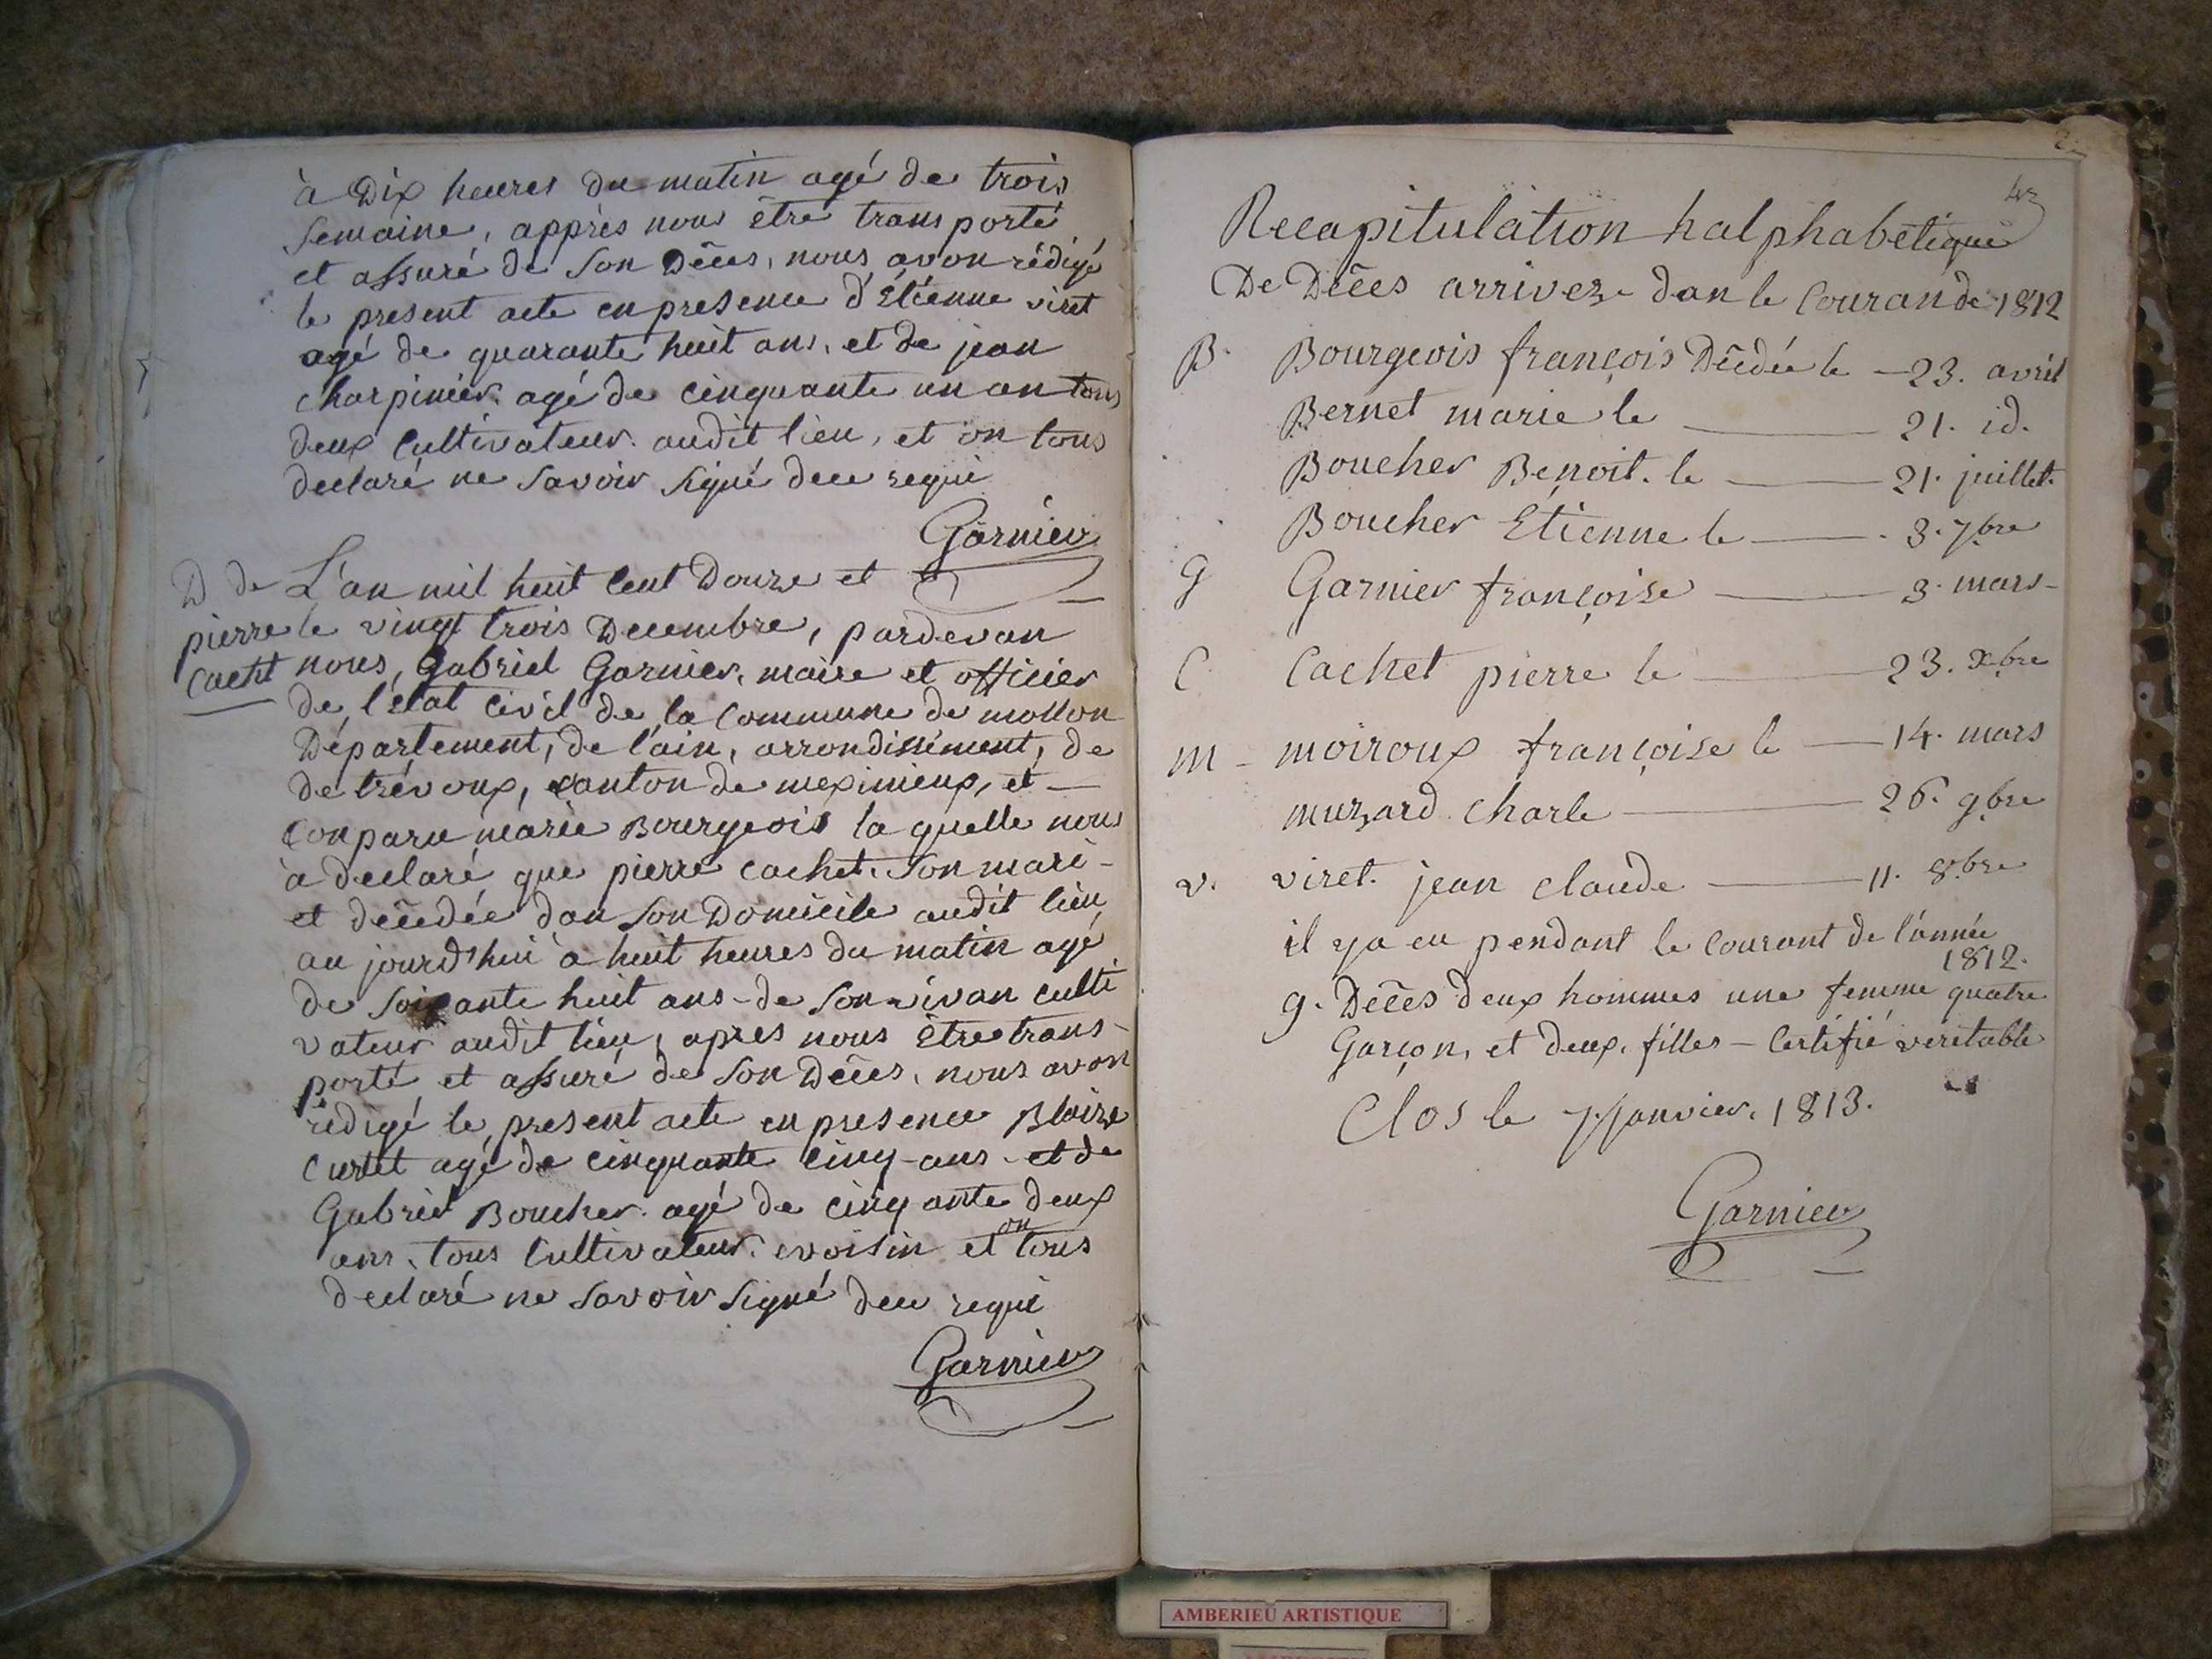 à Dix heures du matin agé de trois
Semaine, apprès nous être transporté
et assuré de Son Décès, nous avon rédigé
le present acte en presence d'Etienne viret
agé de quarante huit ans, et de jean
charpinier. agé de cinquante un an tous
deux Cultivateur. audit lieu, et on tous
declaré ne Savoir Signé dece requi
Garnier
D de
pierre
Cachet
L'an mil huit Cent Douze et
le vingt trois Decembre, pardevan
nous, Gabriel Garnier, maire et officier
de l'état Civil de la Commune de mollon
Département, de l'ain, arrondissement, de
de trévoux, canton de meximieux, et —
Conparu marie Bourgeois la quelle nous
à declaré que pierre Cachet. Son mari -
et décédée dan Son Domicile audit lieu
au jourd'hui à huit heures du matin agé
de Soixante huit ans - de Son vivan culti
vateur audit lieu, apres nous être trans-
porté et assuré de Son Décès, nous avon
rédigé le present acte en presence Blaize
Curtet agé de cinquante cinq-ans - et de
Gabriel Boucher. agé de cinq ante deux
ans, tous Cultivateur. evoisin et on tous
declaré ne Savoir Signé dece requi
Garnier
43
Recapitulation halphabétique
De Décès arrivez dan le Couran de 1812
B. Bourgeois françois Décédée le — 23. avril
Bernet marie le — 21. id.
Boucher Benoit. le — 21. juillet.
Boucher Etienne le — 3. 7bre
G Garnier françoise — 3. mars -
C Cachet pierre le — 23. xbre
m - moiroux françoise le — 14. mars
muzard. Charle — 26. 9bre
v. viret. jean claude — 11. 8bre
il ya eu pendant le Courant de l'année
1812.
9. Décès deux hommes une femme quatre
Garçon, et deux filles — Certifié veritable
Clos le 7. janvier. 1813.
Garnier
AMBERIEU ARTISTIQUE